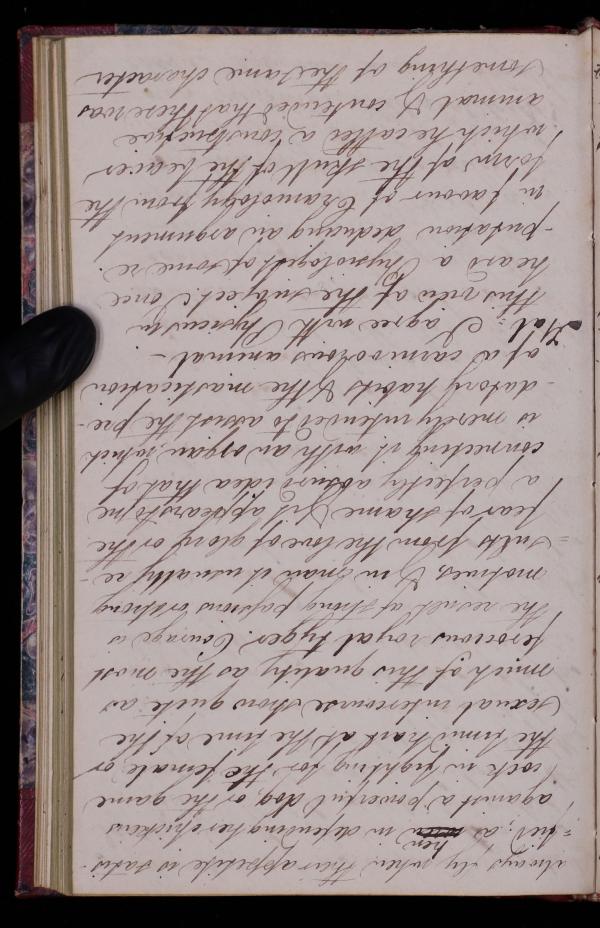 always fly when their appetite is satis-
=fied; a hen in defending her chickens
against a powerful dog, or the game
cock in fighting for the female or
the timid hart at the time of the
sexual intercourse show quite as
much of this quality as the most
ferocious royal tyger. Courage is
the result of strong passions or strong
motives, & in man it usually re-
=sults from the love of glory or the
fear of shame & it appears to me
a perfectly absurd idea that of
connecting it with an organ which
is merely intended to assist the pre-
-datory habits & the mastication
of a carnivorous animal –
Hal: I agree with Physicus in
this view of the subject. I once
heard a Physiologist of some re-
-putation deducing an argument
in favour of Craniology from the
form of the skull of the beaver
which he called a constructive
animal & contended that there was
something of the same character